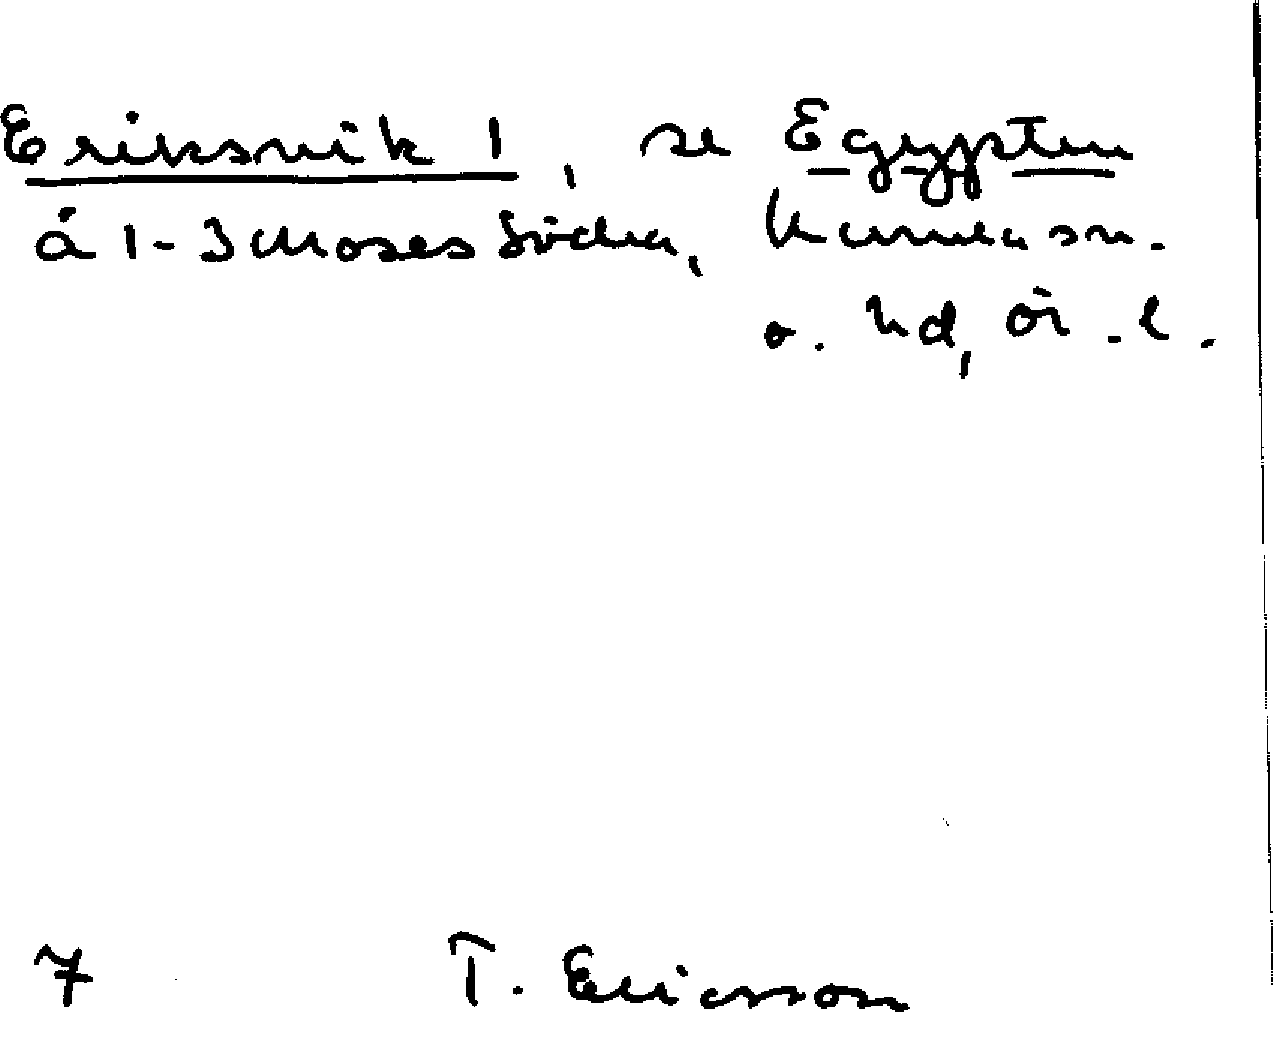 Eriksvik 1, se Egypten
å 1-3 Moses Södra, Kumla sn.
o. hd, Ör. l.
7 T. Ericsson